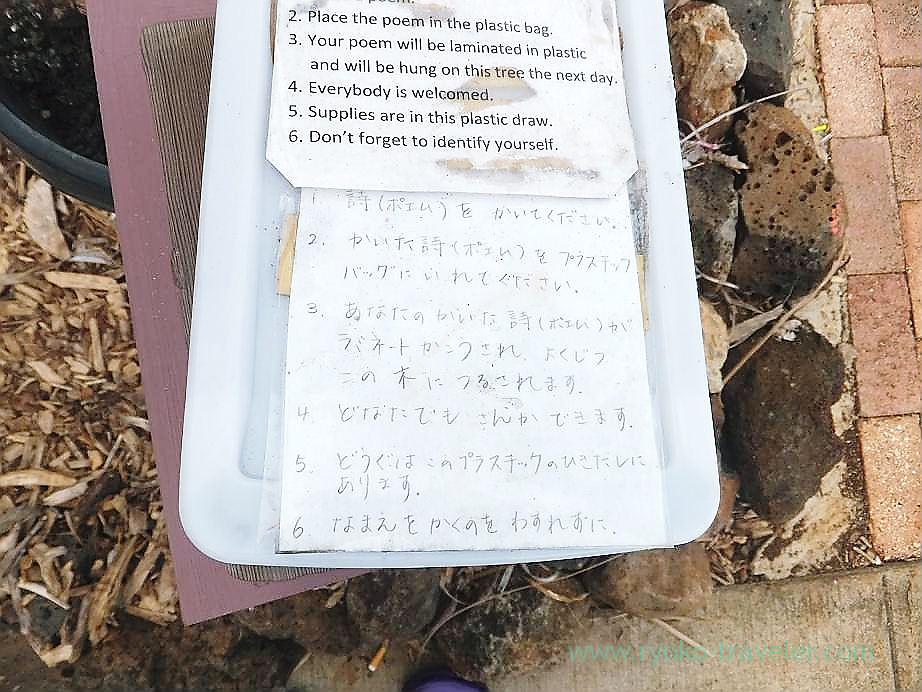 poem.
2. Place the poem in the plastic bag.
3. Your poem will be laminated in plastic
and will be hung on this tree the next day.
4. Everybody is welcomed.
5. Supplies are in this plastic draw.
6. Don't forget to identify yourself.
1. 詩(ポエム)を かいてください。
2. かいた詩(ポエム)を プラスチック
バッグに いれてください。
3. あなたの かいた 詩(ポエム)が
ラミネート かこうされ、よくじつ
この 木に つるされます。
4 どなたでも さんか できます。
5. どうぐは このプラスチックのひきだしに
あります。
6 なまえを かくのを わすれずに。
www.ryoko-traveler.com